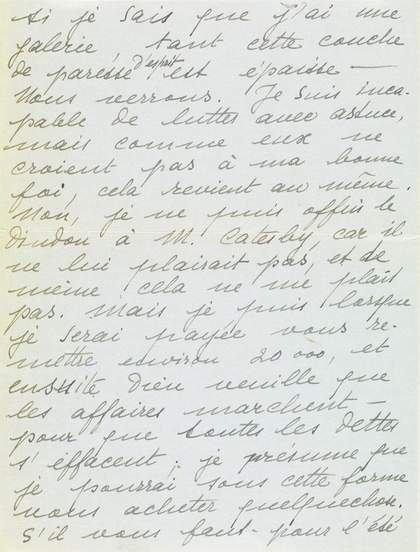 si je sais que j'ai une
galerie, tant cette couche
de paresse d'esprit est épaisse —
Nous verrons. Je suis inca-
pable de luttes avec astuce,
mais comme eux ne
croient pas à ma bonne
foi, cela revient au même.
Non, je ne puis offrir le
dindon à M. Catesby, car il
ne lui plairait pas, et de
même cela ne me plaît
pas. Mais je puis lorsque
je serai payée vous re-
mettre environ 20 000, et
ensuite, Dieu veuille que
les affaires marchent —
pour que toutes les dettes
s'effacent : je présume que
je pourrai sous cette forme
vous acheter quelquechose.
S'il vous faut - pour l'été